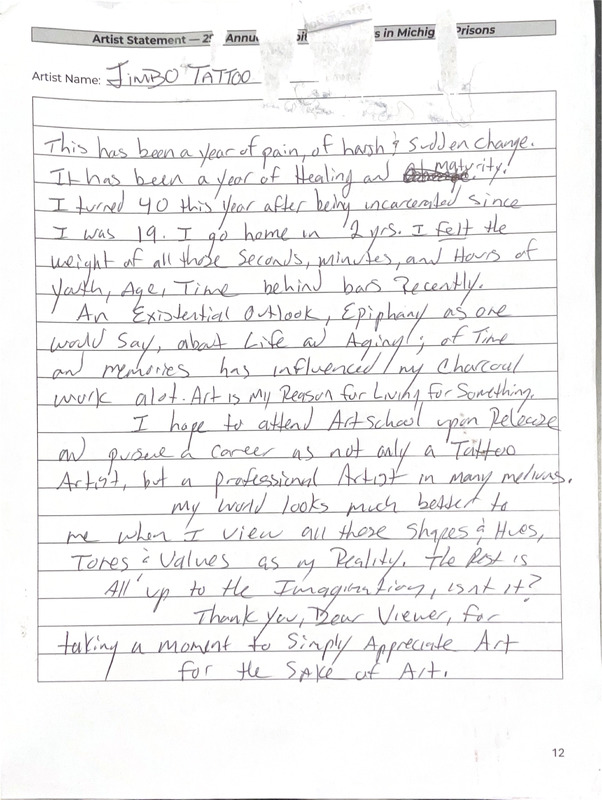 Artist Statement — 2 Annu s in Michig Prisons
Artist Name: JIMBO TATTOO
This has been a year of pain, of harsh & Sudden change.
It has been a year of Healing and maturity!
I turned 40 this year after being incarcerated since
I was 19. I go home in 2 yrs. I felt the
weight of all those Seconds, minutes, and Hours of
youth, Age, Time behind bars Recently.
An Existential Outlook, Epiphany as one
would Say, about Life and Aging; of Time
and memories has influenced my Charcoal
work alot. Art is my Reason for Living for Something.
I hope to attend Art School upon Release
and pursue a career as not only a Tattoo
Artist, but a professional Artist in many mediums.
my world looks much better to
me when I view all those Shapes & Hues,
Tones & Values as my Reality. the Rest is
All up to the Imagination, isnt it?
Thank you, Dear Viewer, for
taking a moment to Simply Appreciate Art
for the SAKE of Art.
12